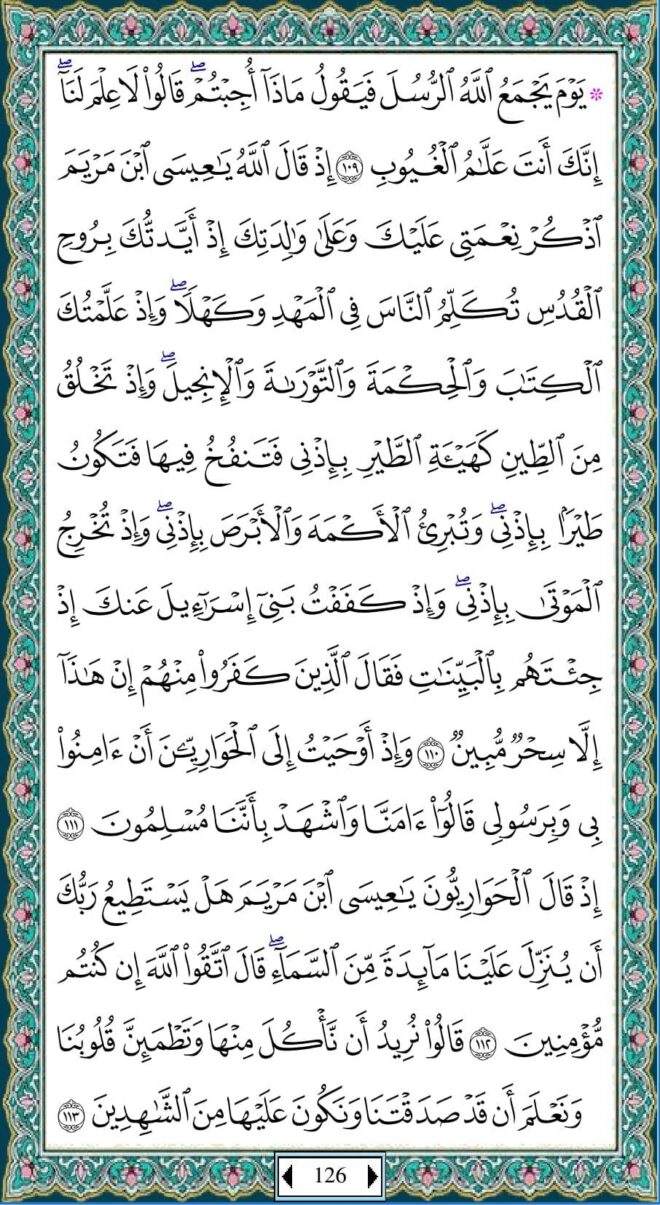 ۞ يَوْمَ يَجْمَعُ ٱللَّهُ ٱلرُّسُلَ فَيَقُولُ مَاذَآ أُجِبْتُمْۖ قَالُوا۟ لَا عِلْمَ لَنَآۖ
إِنَّكَ أَنتَ عَلَّٰمُ ٱلْغُيُوبِ ١٠٩ إِذْ قَالَ ٱللَّهُ يَٰعِيسَى ٱبْنَ مَرْيَمَ
ٱذْكُرْ نِعْمَتِى عَلَيْكَ وَعَلَىٰ وَٰلِدَتِكَ إِذْ أَيَّدتُّكَ بِرُوحِ
ٱلْقُدُسِ تُكَلِّمُ ٱلنَّاسَ فِى ٱلْمَهْدِ وَكَهْلًاۖ وَإِذْ عَلَّمْتُكَ
ٱلْكِتَٰبَ وَٱلْحِكْمَةَ وَٱلتَّوْرَىٰةَ وَٱلْإِنجِيلَۖ وَإِذْ تَخْلُقُ
مِنَ ٱلطِّينِ كَهَيْـَٔةِ ٱلطَّيْرِ بِإِذْنِى فَتَنفُخُ فِيهَا فَتَكُونُ
طَيْرًۢا بِإِذْنِىۖ وَتُبْرِئُ ٱلْأَكْمَهَ وَٱلْأَبْرَصَ بِإِذْنِىۖ وَإِذْ تُخْرِجُ
ٱلْمَوْتَىٰ بِإِذْنِىۖ وَإِذْ كَفَفْتُ بَنِىٓ إِسْرَٰٓءِيلَ عَنكَ إِذْ
جِئْتَهُم بِٱلْبَيِّنَٰتِ فَقَالَ ٱلَّذِينَ كَفَرُوا۟ مِنْهُمْ إِنْ هَٰذَآ
إِلَّا سِحْرٌ مُّبِينٌ ١١٠ وَإِذْ أَوْحَيْتُ إِلَى ٱلْحَوَارِيِّـۧنَ أَنْ ءَامِنُوا۟
بِى وَبِرَسُولِى قَالُوٓا۟ ءَامَنَّا وَٱشْهَدْ بِأَنَّنَا مُسْلِمُونَ ١١١
إِذْ قَالَ ٱلْحَوَارِيُّونَ يَٰعِيسَى ٱبْنَ مَرْيَمَ هَلْ يَسْتَطِيعُ رَبُّكَ
أَن يُنَزِّلَ عَلَيْنَا مَآئِدَةً مِّنَ ٱلسَّمَآءِۖ قَالَ ٱتَّقُوا۟ ٱللَّهَ إِن كُنتُم
مُّؤْمِنِينَ ١١٢ قَالُوا۟ نُرِيدُ أَن نَّأْكُلَ مِنْهَا وَتَطْمَئِنَّ قُلُوبُنَا
وَنَعْلَمَ أَن قَدْ صَدَقْتَنَا وَنَكُونَ عَلَيْهَا مِنَ ٱلشَّٰهِدِينَ ١١٣
126